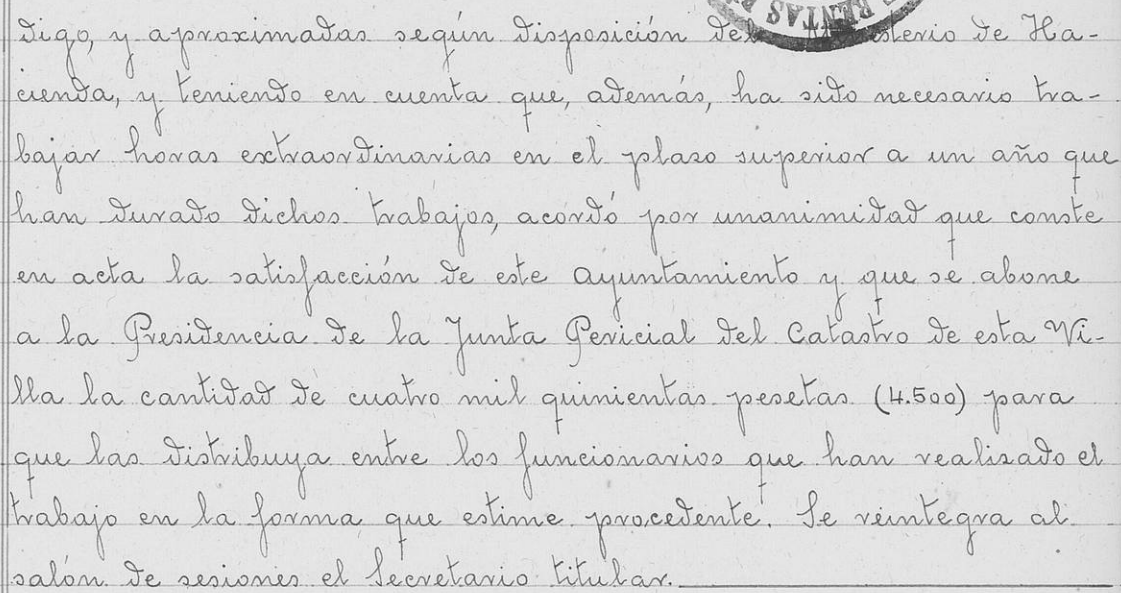 RENTAS
digo, y aproximadas según disposición del Ministerio de Ha-
cienda, y teniendo en cuenta que, además, ha sido necesario tra-
bajar horas extraordinarias en el plazo superior a un año que
han durado dichos trabajos, acordó por unanimidad que conste
en acta la satisfacción de este Ayuntamiento y que se abone
a la Presidencia de la Junta Pericial del Catastro de esta Vi-
lla la cantidad de cuatro mil quinientas pesetas (4.500) para
que las distribuya entre los funcionarios que han realizado el
trabajo en la forma que estime procedente. Se reintegra al
salón de sesiones el Secretario titular.